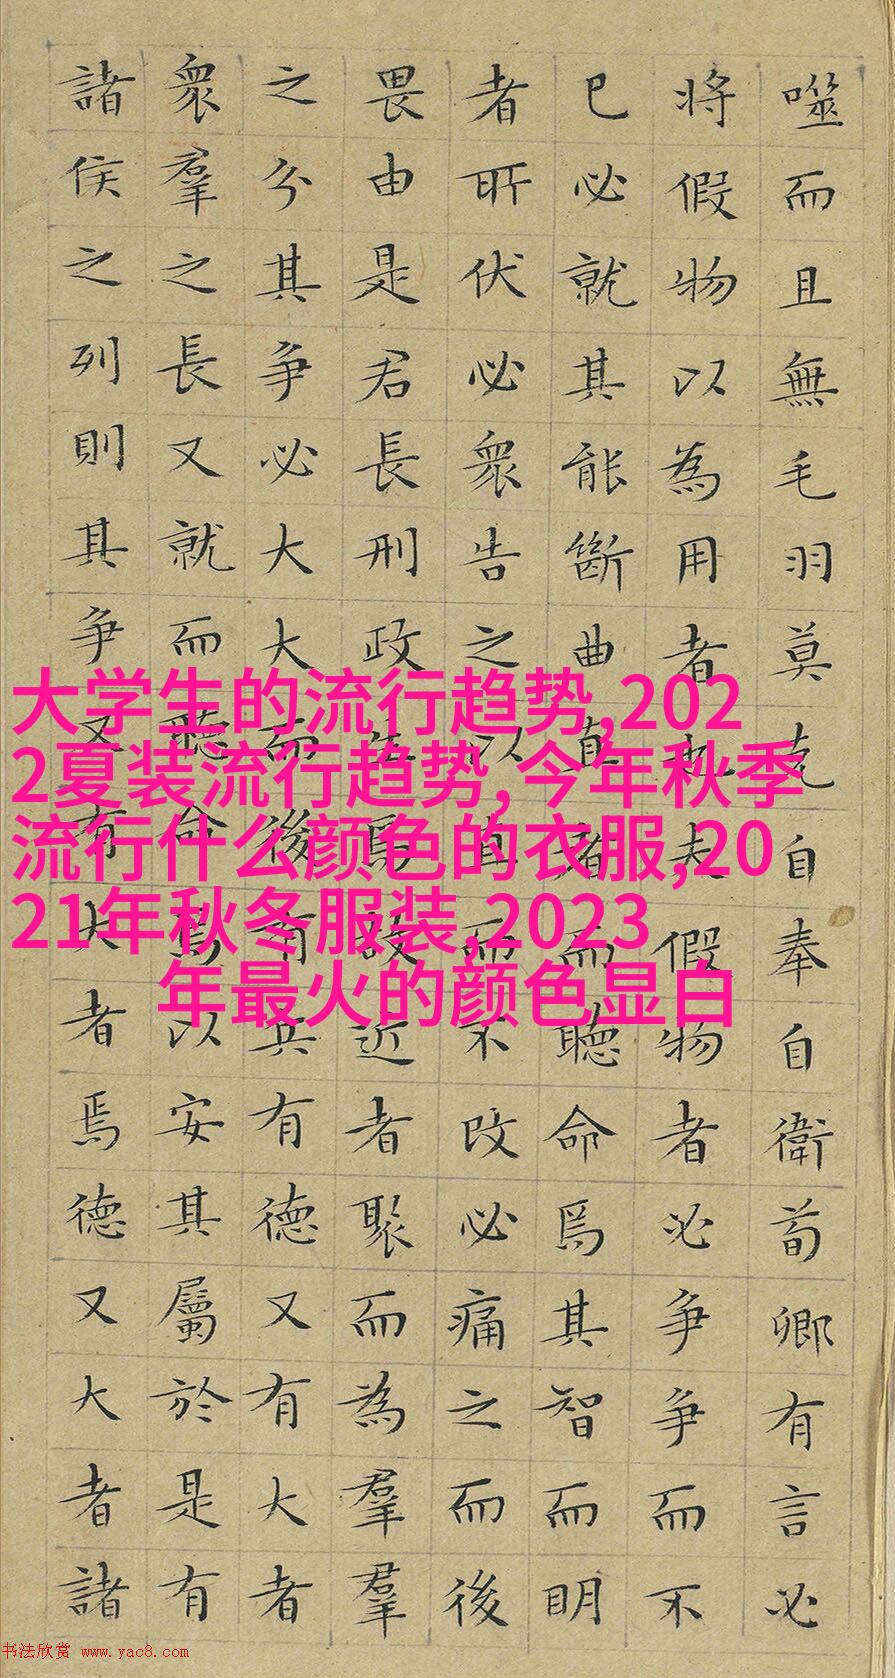 噬而且無毛羽莫克自奉自衛荀卿有言必
将假物以為用者也夫假物者必争争而不
已必就其能斷曲直者而聽命焉其智而明
者所伏必衆告之以直而不改必痛之而後
畏由是君長刑政生焉故近者聚而為羣羣
之分其争必大大而後有兵有德又有大者
衆羣之長又就而聽命焉以安其屬於是有
諸侯之列則其争又有大者焉德又大者諸
大学生的流行趋势,202
2夏装流行趋势,今年秋季
流行什么颜色的衣服,20
21年秋冬服装,2023
年最火的颜色显白
书法欣赏 www.yac8.com